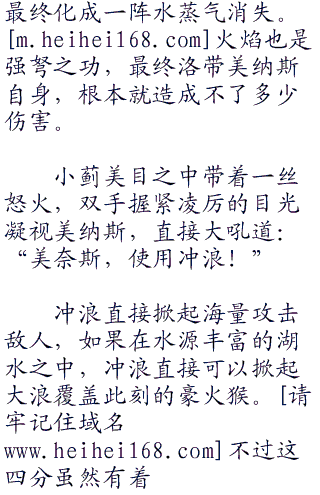 最终化成一阵水蒸气消失。
[m.heihei168.com]火焰也是
强弩之功，最终洛带美纳斯
自身，根本就造成不了多少
伤害。
小蓟美目之中带着一丝
怒火，双手握紧凌厉的目光
凝视美纳斯，直接大吼道：
“美奈斯，使用冲浪！”
冲浪直接掀起海量攻击
敌人，如果在水源丰富的湖
水之中，冲浪直接可以掀起
大浪覆盖此刻的豪火猴。[请
牢记住域名
www.heihei168.com]不过这
四分虽然有着